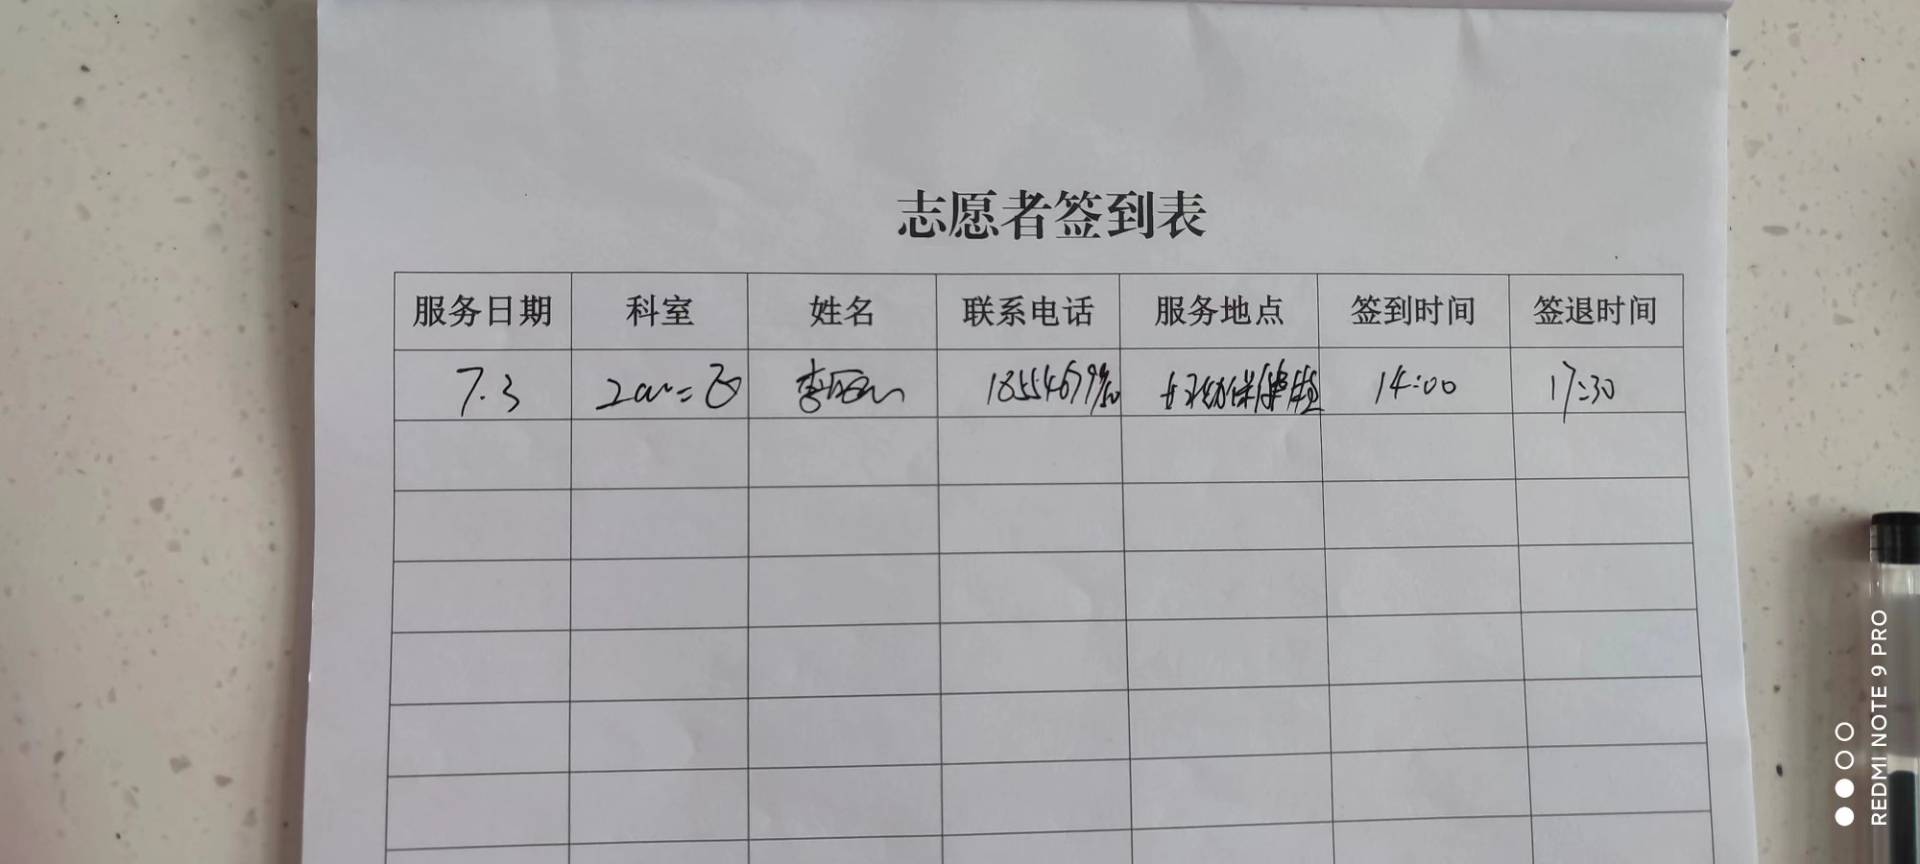 志愿者签到表
服务日期 科室 姓名 联系电话 服务地点 签到时间 签退时间
7.3 李 妇幼保健 14:00 17:30
REDMI NOTE 9 PRO